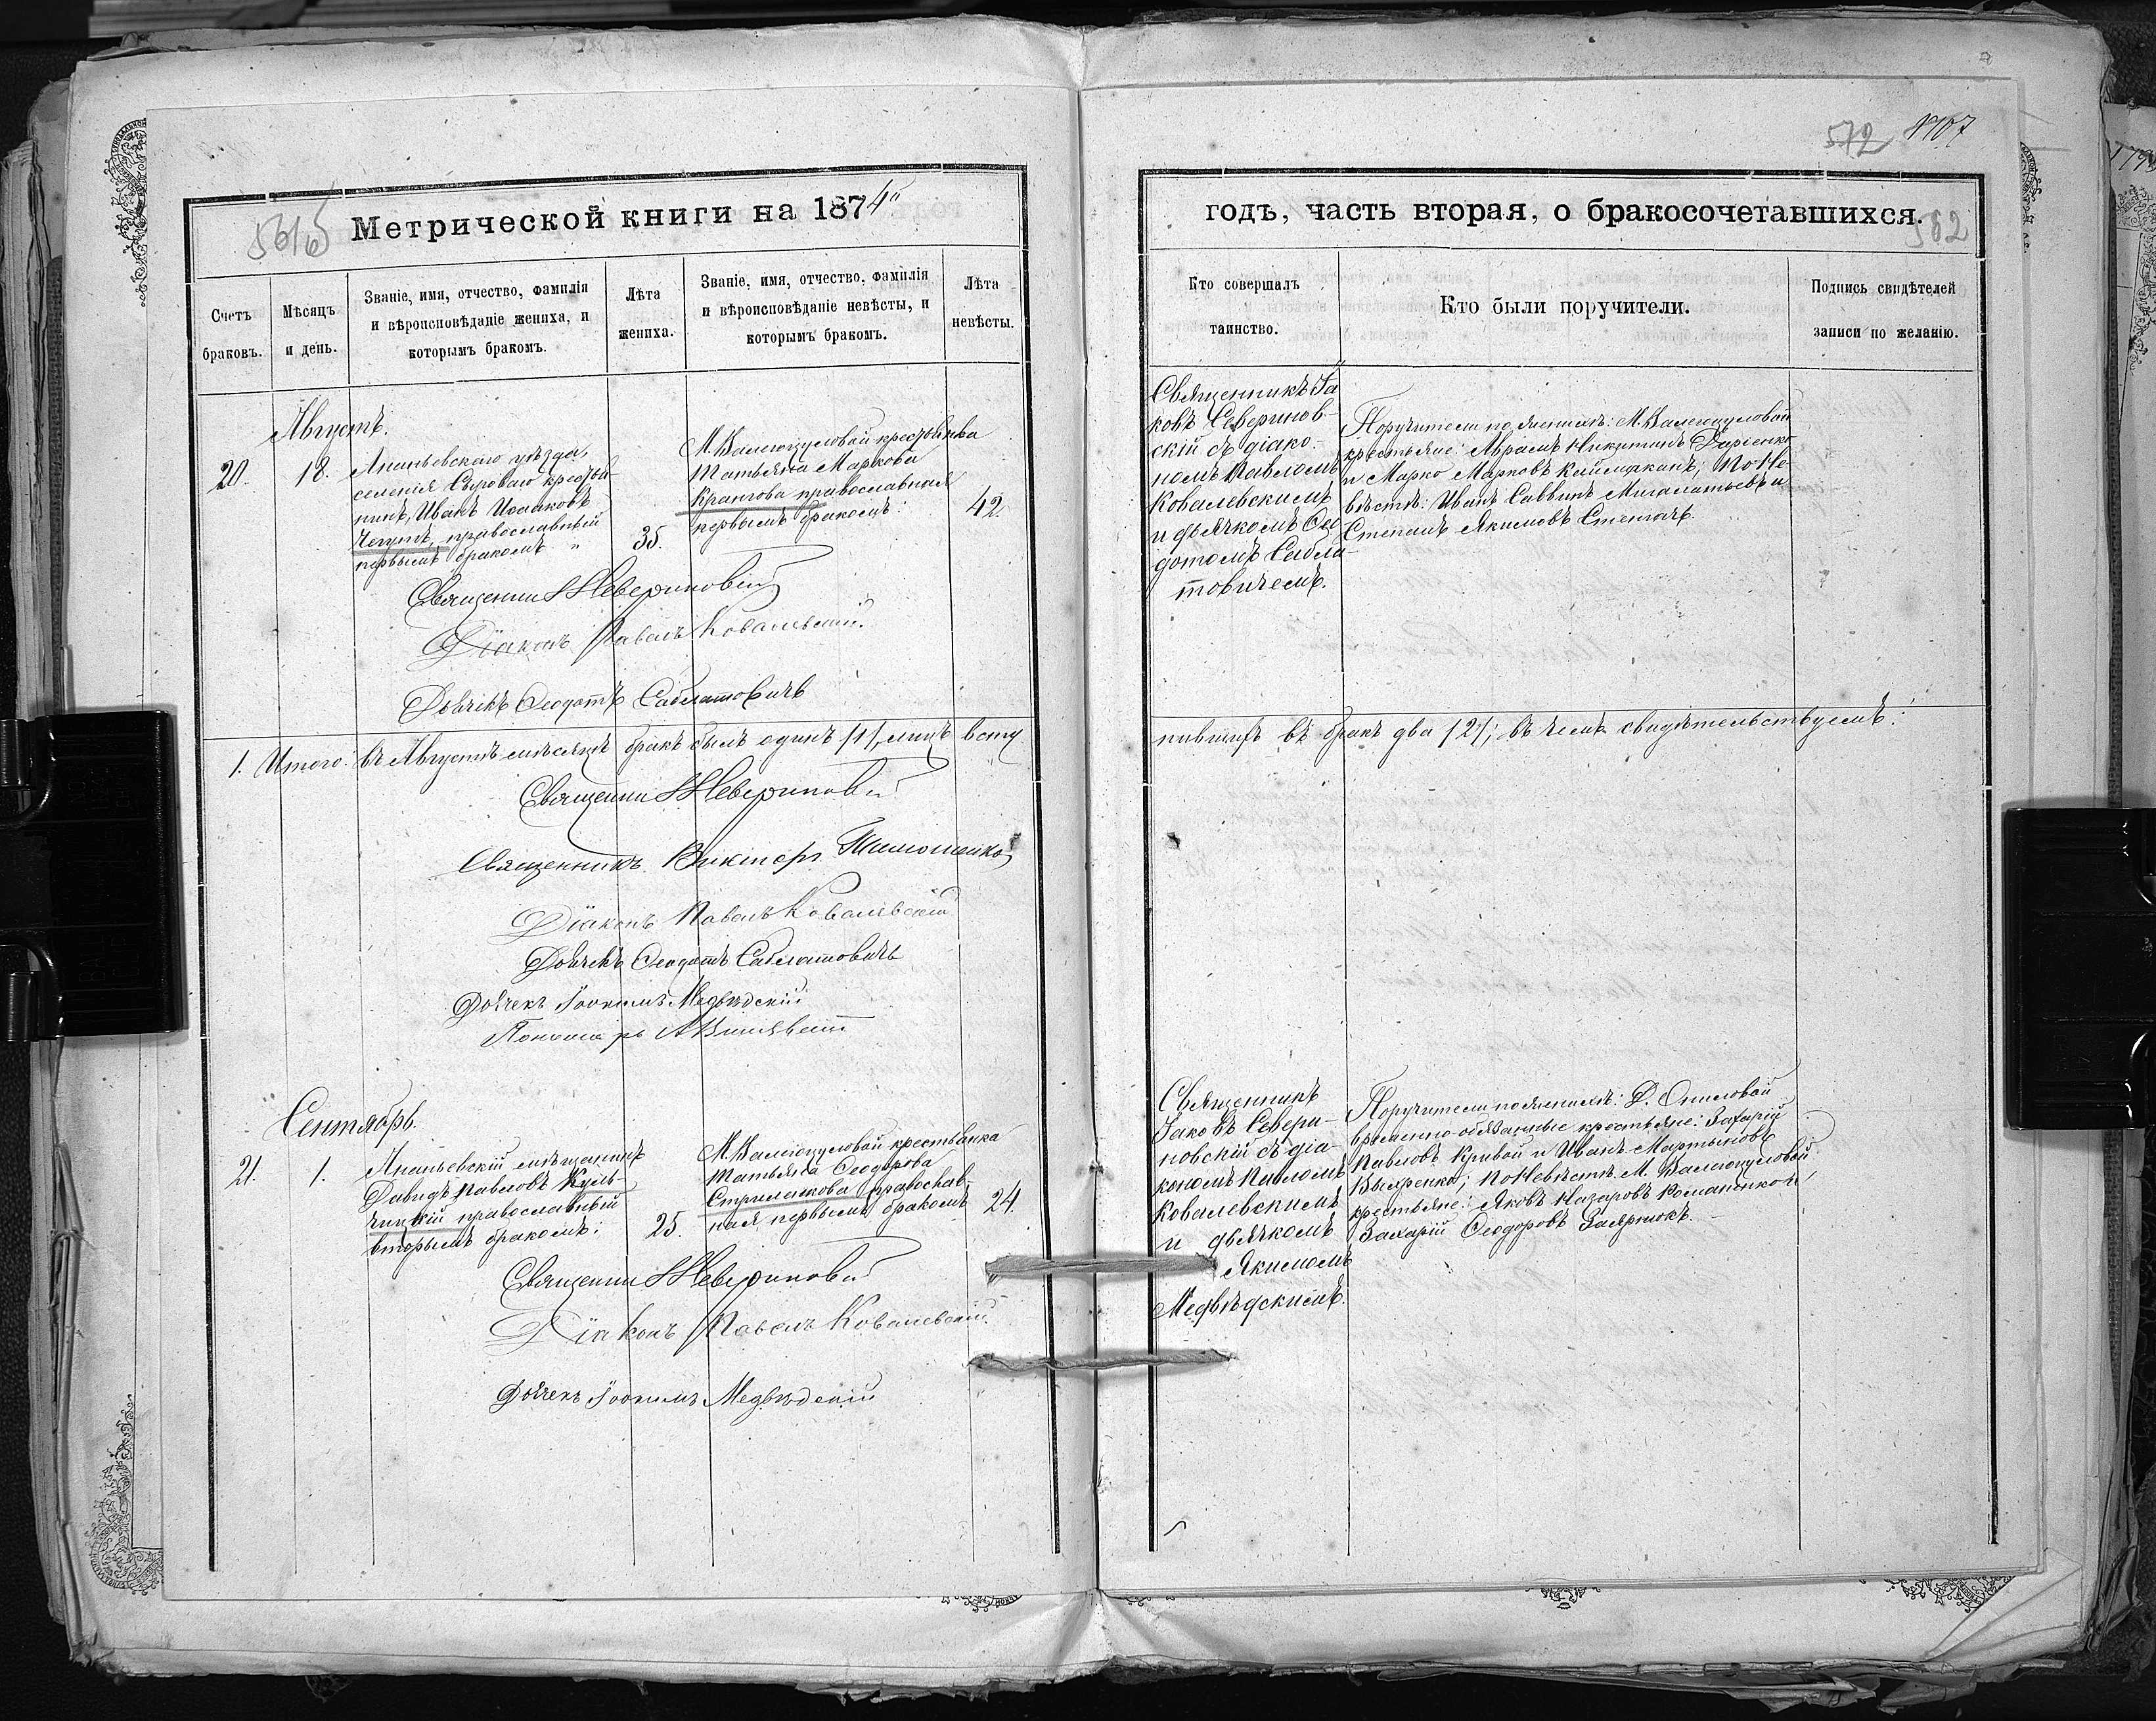 572 1107
5615
Метрической книги на 1874
годъ, часть вторая, о бракосочетавшихся.
562
Счетъ
браковъ.
Мѣсяцъ
и день.
Званіе, имя, отчество, фамилія
и вѣроисповѣданіе жениха, и
которымъ бракомъ.
Лѣта
жениха.
Званіе, имя, отчество, фамилія
и вѣроисповѣданіе невѣсты, и
которымъ бракомъ.
Лѣта
невѣсты.
Кто совершалъ
таинство.
Кто были поручители.
Подпись свидѣтелей
записи по желанію.
Августъ.
20.
18.
Ананьевскаго уѣзда,
селенія Сыроваго крестья-
нинъ, Иванъ Исааковъ
православный
первымъ бракомъ "
35.
М. Валегоцуловой крестьянка
Татьяна Маркова
православная
первымъ бракомъ.
42.
Священникъ Іа
ковъ Северинов-
скій съ діако-
номъ Павломъ
Ковалевскимъ
и дьячкомъ Ѳео
дотомъ Сабла-
товичемъ.
Поручители по женихѣ: М. Валегоцуловой
крестьяне: Аврамъ Никитинъ Даріенко
и Марко Марковъ Каймаканъ; По не-
вѣстѣ: Иванъ Саввинъ и
Степанъ Якимовъ
Священникъ І Севериновскій
Діаконъ Павелъ Ковалевскій.
Дьячекъ Ѳеодотъ Саблатовичъ
1. Итого: въ Августѣ мѣсяцѣ бракъ былъ одинъ /1/, лицъ всту
пившихъ въ бракъ два /2/; въ чемъ свидѣтельствуемъ:
Священникъ І Севериновскій
Священникъ Викторъ Тимошенко
Діаконъ Павелъ Ковалевскій
Дьячекъ Ѳеодотъ Саблатовичъ
Дьячекъ Іоакимъ Медвѣдскій
Пономарь А
Сентябрь.
21.
1.
Ананьевскій мѣщанинъ
Давидъ Павловъ Куль-
чицкій православный
вторымъ бракомъ;
25.
М. Валегоцуловой крестьянка
Татьяна Ѳеодорова
православ-
ная, первымъ бракомъ
24.
Священникъ
Іаковъ Севери-
новскій съ діа-
кономъ Павломъ
Ковалевскимъ
и дьячкомъ
Якимомъ
Медвѣдскимъ.
Поручители по женихѣ: Д.
временно обязанные крестьяне: Захарій
Павловъ Кривой и Иванъ Мартыновъ
По невѣстѣ М. Валегоцуловой
крестьяне: Яковъ Назаровъ Романенко и
Захарій Ѳеодоровъ
Священникъ І Севериновскій
Діаконъ Павелъ Ковалевскій.
Дьячекъ Іоакимъ Медвѣдскій